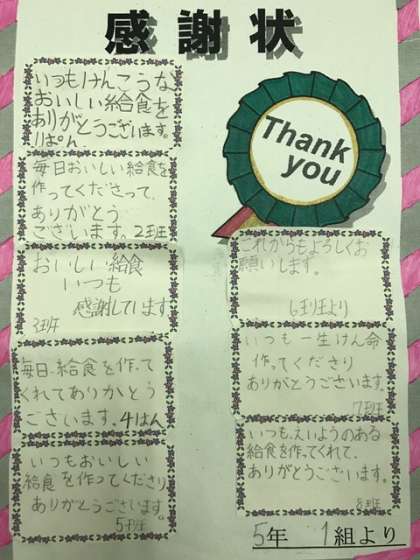 感謝状
いつもけんこうな
おいしい給食を
ありがとうございます。
1ぱん
毎日おいしい給食を
作ってくださって、
ありがとう
ございます。2班
おいしい給食
いつも
感謝しています。
3班
毎日、給食を作って
くれてありがとう
ございます。4はん
いつもおいしい
給食を作ってくださり
ありがとうございます。
5班
Thank
you
これからもよろしくお
願いします。
6班より
いつも一生けん命
作ってくださり
ありがとうございます。
7班
いつも、えいようのある
給食を作ってくれて、
ありがとうございます。
8班
5年 1組より